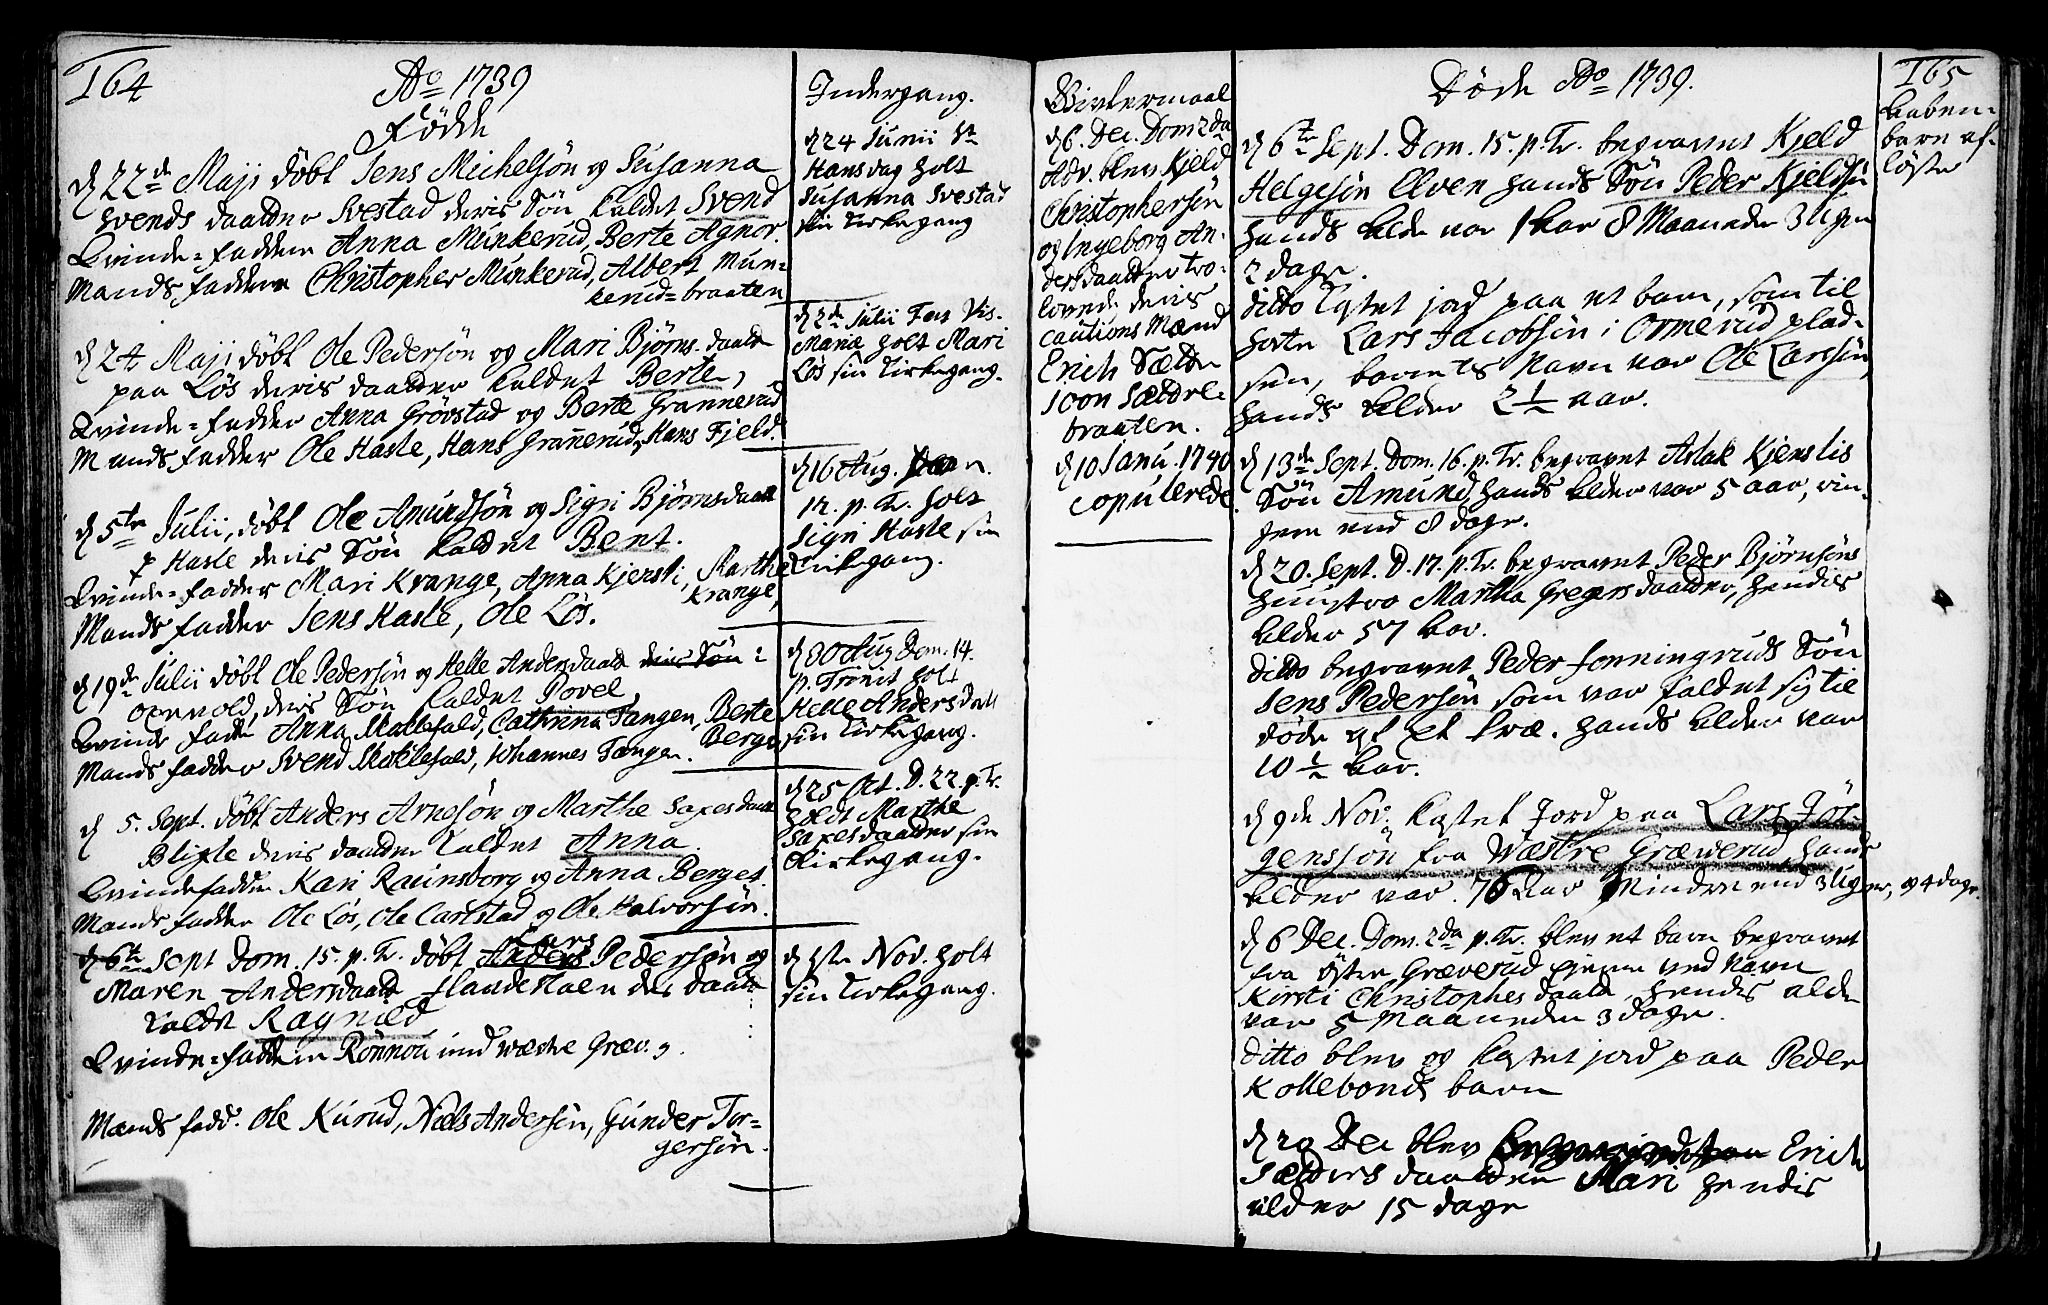 164
Ao 1739
Födde
d 22de Maji döbt Jens Michelsön og Susanna
Svends daatter Svestad deris Sön kaldet Svend
Qvinde=faddere Anna Munkerud, Berte Agnor.
Mands faddere Christopher Munkerud, Albert Mun=
kerud=braaten
d 24 Maji döbt Ole Pedersön og Mari Björns daatt
paa Lös deris daatter kaldet Berte,
Qvinde=fadder Anna Grövstad og Berte Grannerud
Mands fadder Ole Hasle, Hans Grannerud, Hans Fjeld.
d 5te Julii, döbt Ole Amundsön og Sigri Björnsdaatt
p Hasle deris Sön kaldet Bent.
Qvinde=fadder Mari Krange, Anna Kjensli, Marthe
Krange,
Mands fadder Jens Hasle, Ole Lös.
d 19de Julii döbt Ole Pedersön og Helle Andersdaatt deris Sön
Oppevold, deris Sön kaldet Povel,
Qvinde fadd Anna Skollefald, Cathrina Tangen, Berte
Berge,
Mands fadder Svend Skollefald, Johannes Tangen.
d 5. Sept. döbt Anders Arnesön og Marthe Saxesdaatt
Blixle deris daatter kaldet Anna.
Qvindefadder Kari Raunsborg og Anna Berges.
Mands fadder Ole Lös, Ole Carlstad og Ole Halvorsön.
Lars
d 6te Sept Dom. 15. p. Tr. döbt Anders Pedersön og
Maren Andersdaatt deris daatt
kaldet Ragnild
Qvinde=fadderen Rönnou
Mands fadd. Ole Kurud, Niels Andersön, Gunder Tor=
gersön.
Indergang.
d 24 Junii St
Hansdag holt
Susanna Svestad
sin Kirkegang
d 2de Julii Fest Vis.
Mariæ holt Mari
Lös sin Kirkegang.
d 16 Aug.
12. p. Tr. holt
Sigri Hasle sin
Kirkegang.
d 30 Aug Dom. 14.
p. Trinit holt
Helle Andersdatt
sin Kirkegang.
d 25 Oct. D. 22. p. Tr.
holdt Marthe
Saxesdaatter sin
Kirkegang.
d 1ste Nov. holt
sin Kirkegang.
d 6. Dec. Dom 2da
Adv. blev Kjeld
Christophersön
og Ingeborg An=
dersdaatter tro=
lovede deris
cautions Mænd
Erich Sætter
Joon Sætre=
braaten.
d 10 Janu. 1740
copulerede.
Döde Ao 1739.
165
d 6te Sept. Dom. 15. p. Tr. begravet Kjeld
Helgesön Elven hands Sön Peder Kjeldsön
hands Alder var 1 Aar 8 Maaneder 3 Uger
2 dage.
ditto kastet jord paa et barn, som til
hörte Lars Jacobsön i Ormerud plad=
sen, barnets Navn var Ole Larsön,
hands Alder 2 1/2 aar.
d 13de Sept. Dom. 16. p. Tr. begravet Aslak Kjenslis
Sön Amund, hands Alder var 5 aar, rin=
gere end 8 dage.
d 20. Sept. D. 17. p. Tr. begravet Peder Björnsöns
hustro Martha Gregersdaatter, hendis
Alder 57 Aar.
ditto begravet Peder Fonningruds Sön
Jens Pedersön som var faldet sig til
döde af et træ. hands Alder var
10 1/2 Aar.
d 9de Nov. kastet Jord paa Lars Jör=
gensön fra Wæstre Græverud, hands
Alder var 76 Aar Mindre end 3 Uger, og 4 dage.
d 6 Dec. Dom. 2da p. Tr. blev et barn begravet
fra Öster Græverud ved Navn
Kirsti Christophesdaatt, hendes alder
var 5 Maaneder 3 dage.
ditto blev og kastet jord paa Peder
Kollebonds barn
d 29 Dec blev Erich
Sætters daatter Mari hendis
alder 15 dage